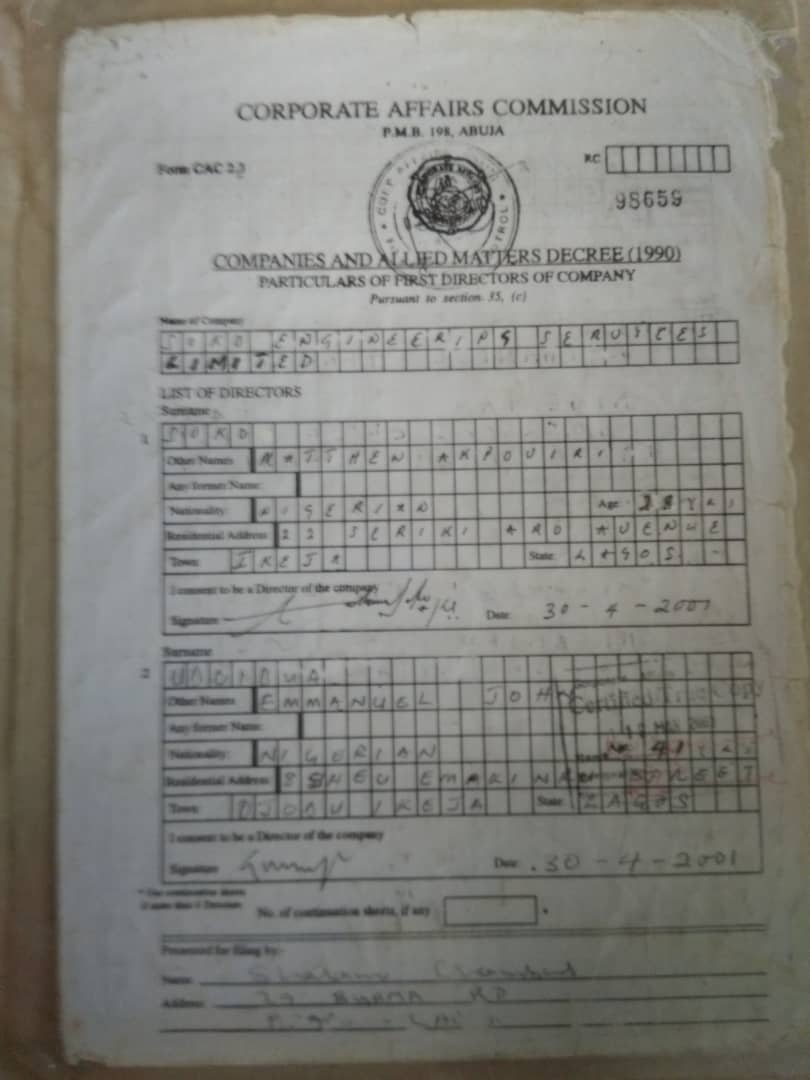 CORPORATE AFFAIRS COMMISSION
P.M.B. 198, ABUJA
Form CAC 2.3
RC
98659
COMPANIES AND ALLIED MATTERS DECREE (1990)
PARTICULARS OF FIRST DIRECTORS OF COMPANY
Pursuant to section 35, (c)
Name of Company
SOKO ENGINEERING SERVICES
LIMITED
LIST OF DIRECTORS
Surname
1 SOKO
Other Names MATTHEW AKPOVIRI
Any former Name:
Nationality: NIGERIAN Age: YRS
Residential Address 22 SERIKI ARO AVENUE
Town: IKEJA State: LAGOS
I consent to be a Director of the company
Signature Date: 30-4-2001
Surname
2
Other Names EMMANUEL JOHN
Certified True Copy
Any former Name:
Nationality: NIGERIAN 41 YRS
Residential Address STREET
Town: IKEJA State: LAGOS
I consent to be a Director of the company
Signature Date: 30-4-2001
* Use continuation sheets
No. of continuation sheets, if any
Presented for filing by:
Name:
Address: RD